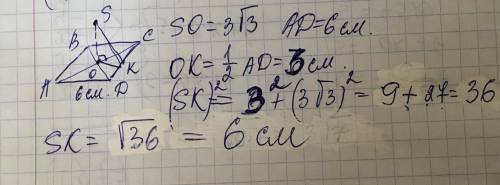 S
B C
O K
A 6 см. D
SO = 3√3 AD = 6 см.
OK = 1/2 AD = 3 см.
(SK)² = 3² + (3√3)² = 9 + 27 = 36
SK = √36 = 6 см